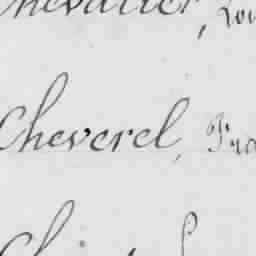 Chevalier, Lou
Cheverel, Fra